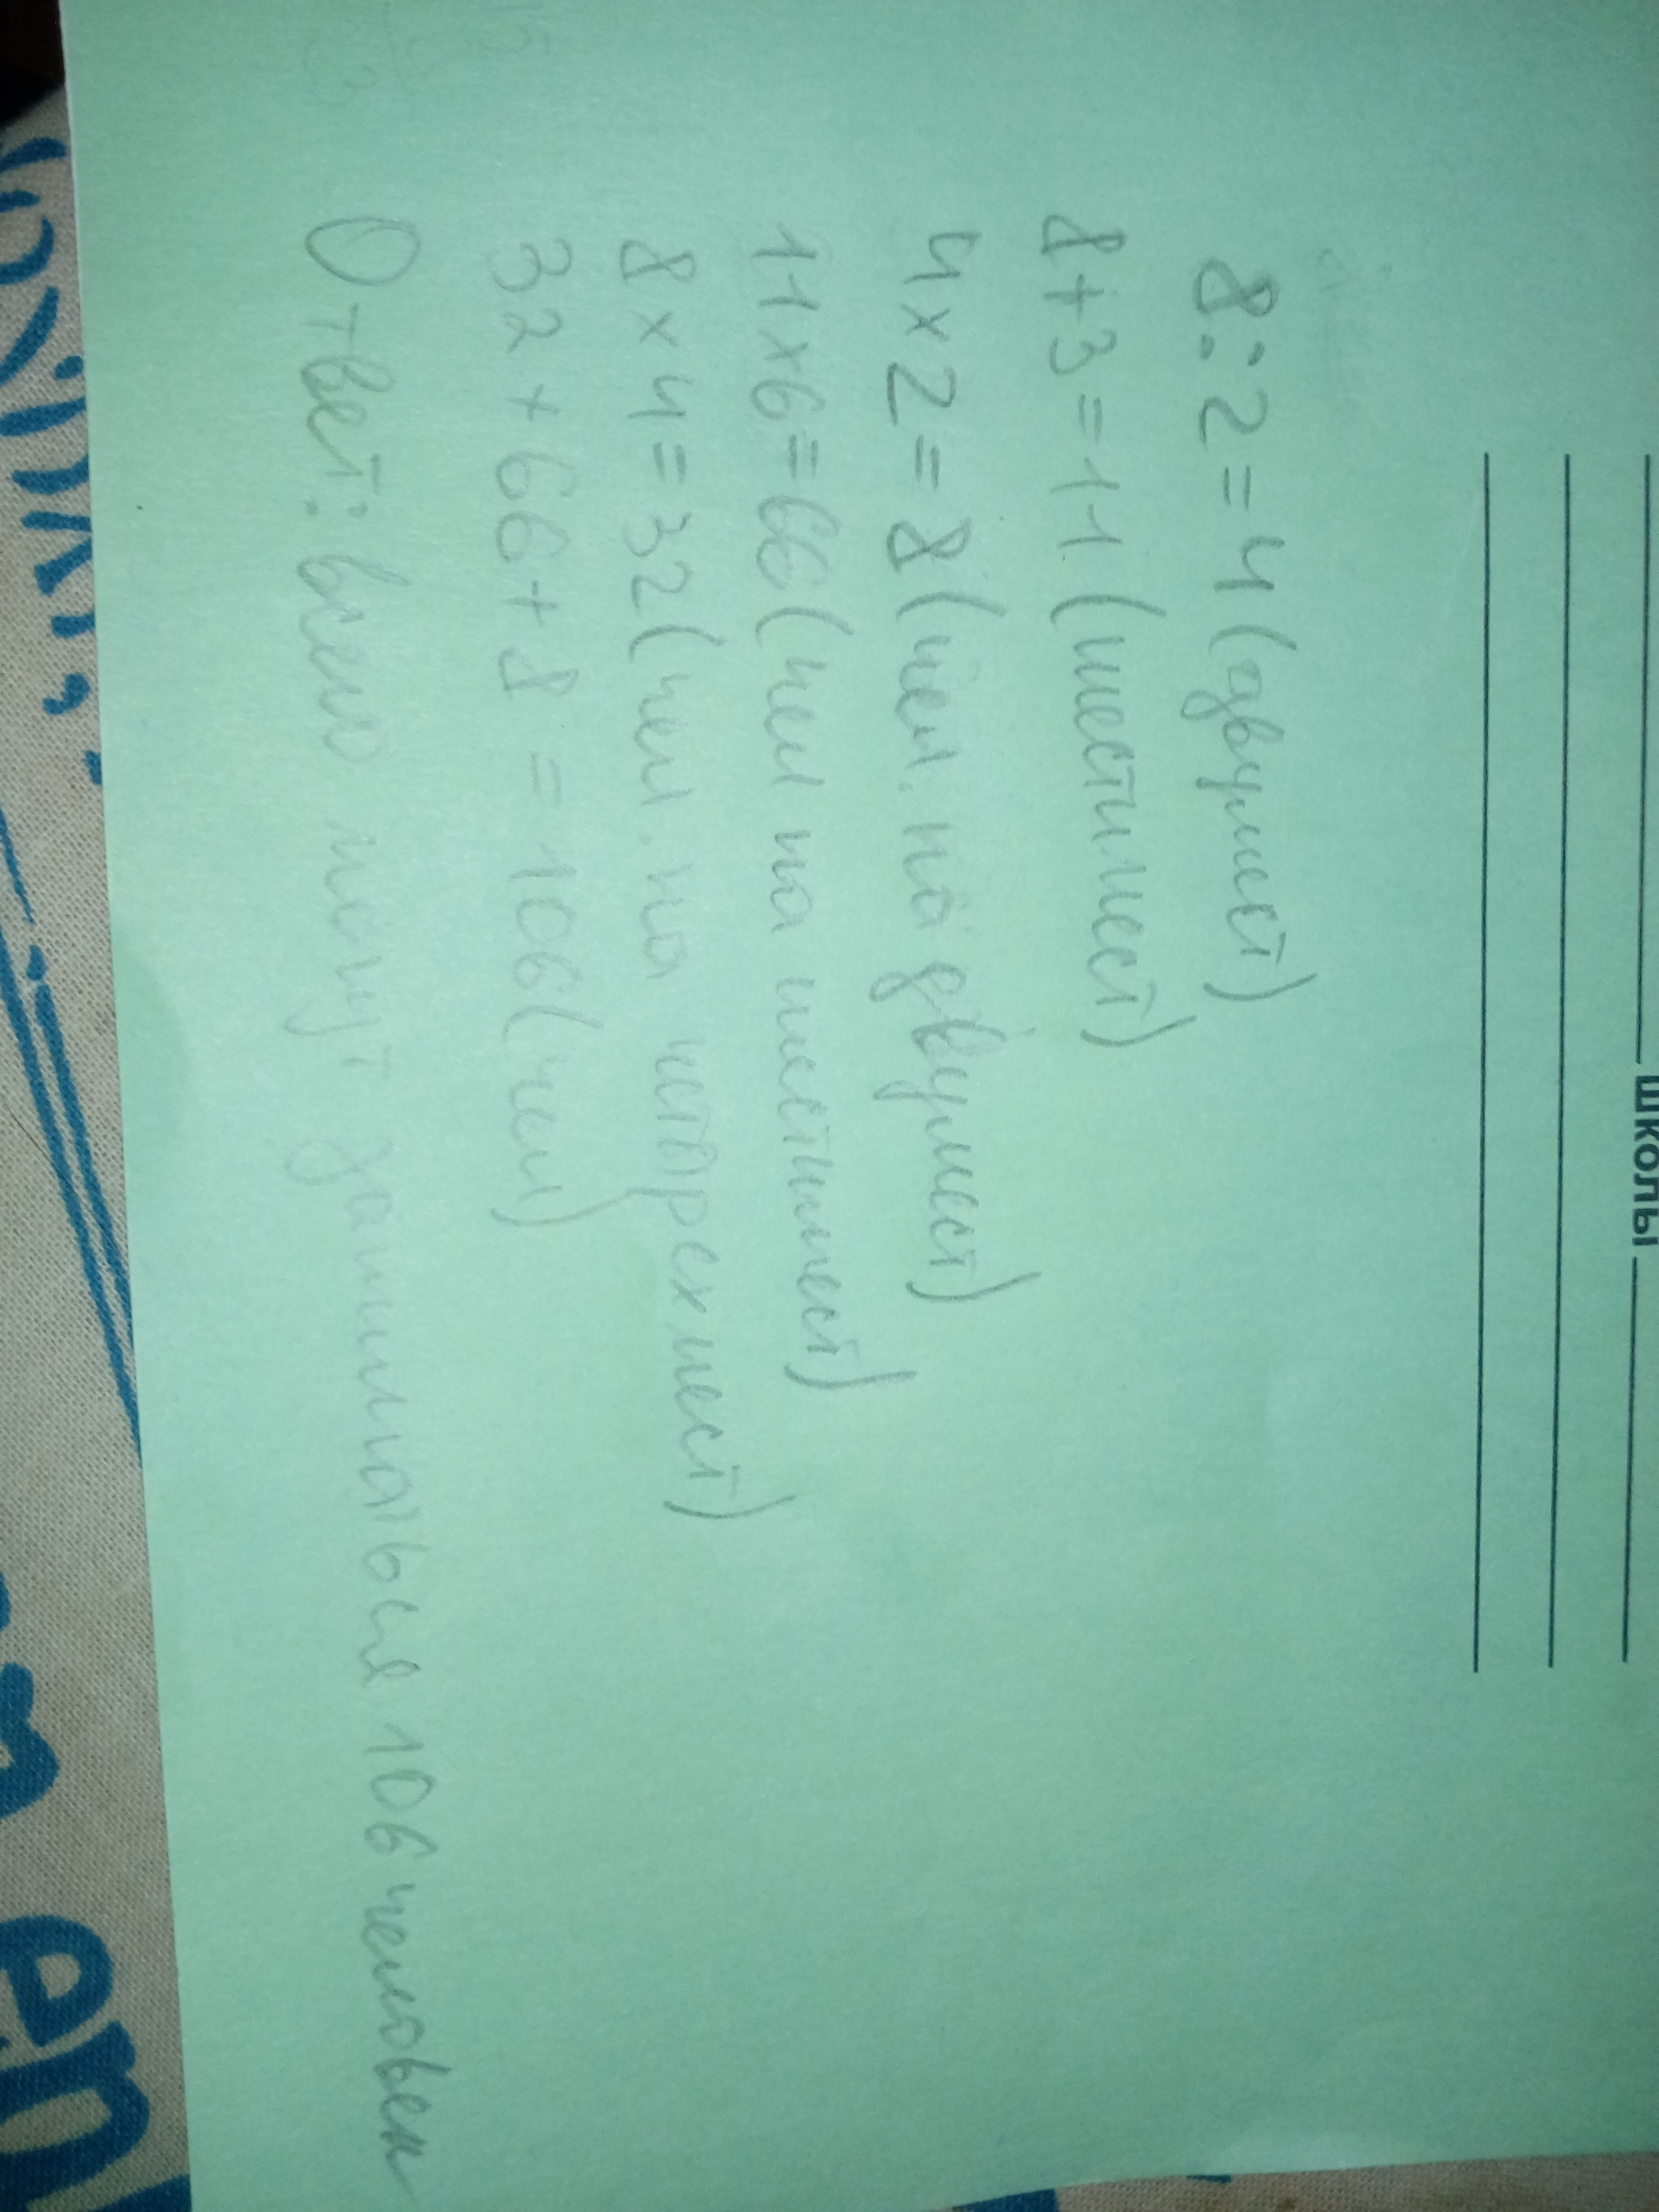 ШКОЛЫ
8:2=4(двумест)
8+3=11(шестимест)
4x2=8(чел. на двумест)
11x6=66(чел на шестимест)
8x4=32(чел. на четырехмест)
32+66+8=106(чел)
Ответ: всего могут заниматься 106 человек